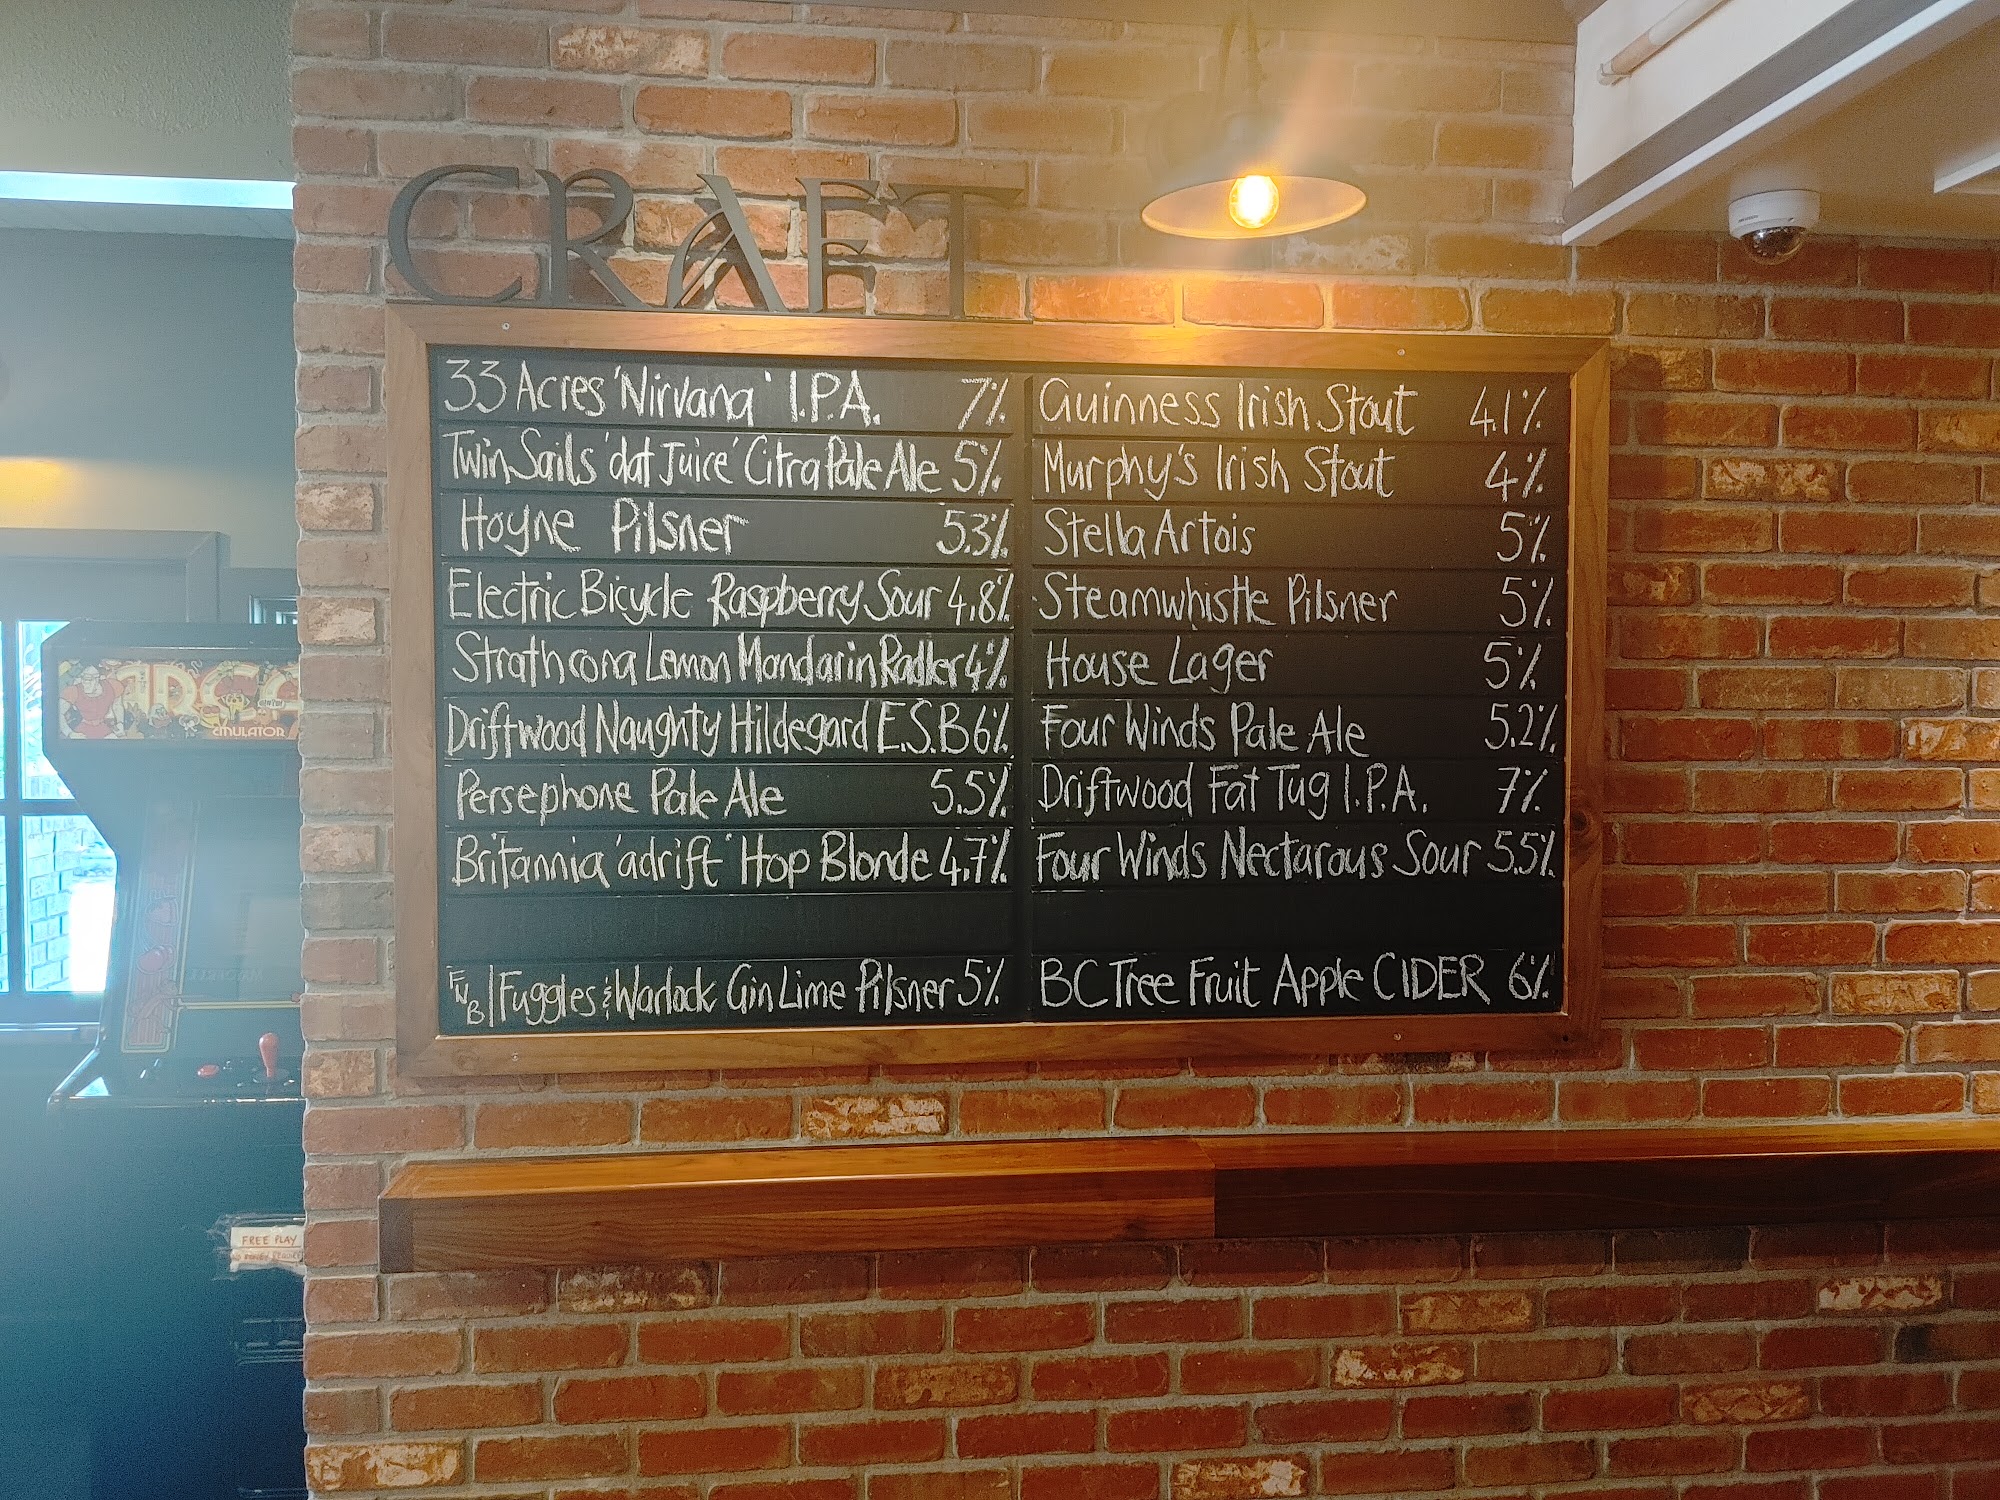 CRAFT
33 Acres 'Nirvana' I.P.A. 7%
Twin Sails 'dat Juice' Citra Pale Ale 5%
Hoyne Pilsner 5.3%
Electric Bicycle Raspberry Sour 4.8%
Strathcona Lemon Mandarin Radler 4%
Driftwood Naughty Hildegard E.S.B 6%
Persephone Pale Ale 5.5%
Britannia 'adrift' Hop Blonde 4.7%
FWB | Fuggles & Warlock Gin Lime Pilsner 5%
Guinness Irish Stout 4.1%
Murphy's Irish Stout 4%
Stella Artois 5%
Steamwhistle Pilsner 5%
House Lager 5%
Four Winds Pale Ale 5.2%
Driftwood Fat Tug I.P.A. 7%
Four Winds Nectarous Sour 5.5%
BC Tree Fruit Apple CIDER 6%
EMULATOR
FREE PLAY